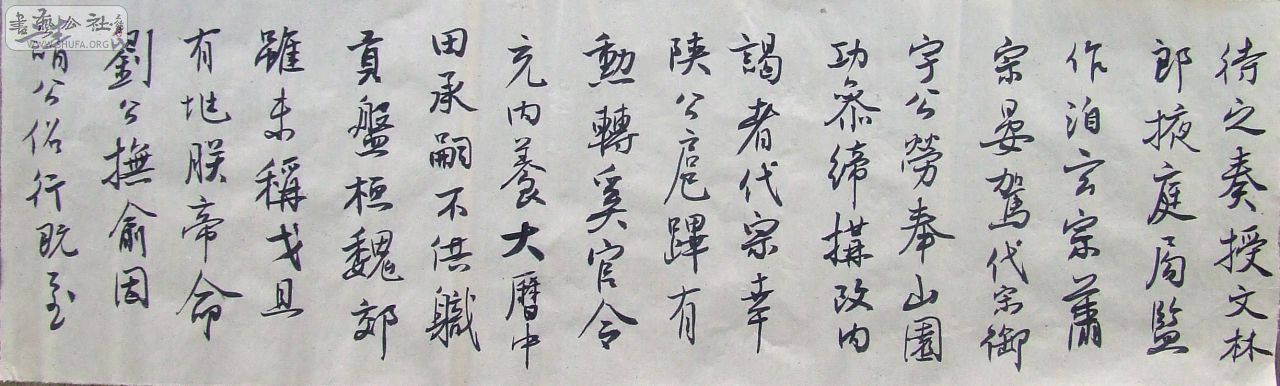 待之奏授文林
郎掖庭局監
作洎玄宗肅
宗晏駕代宗御
宇公勞奉山園
功叅締搆改内
謁者代宗幸
陕公扈蹕有
勳轉奚官令
充内養大曆中
田承嗣不供職
貢盤桓魏郊
雖未稱戈且
有地朕帝命
劉公撫俞因
請公俗行既至
書藝公社
WWW.SHUFA.ORG